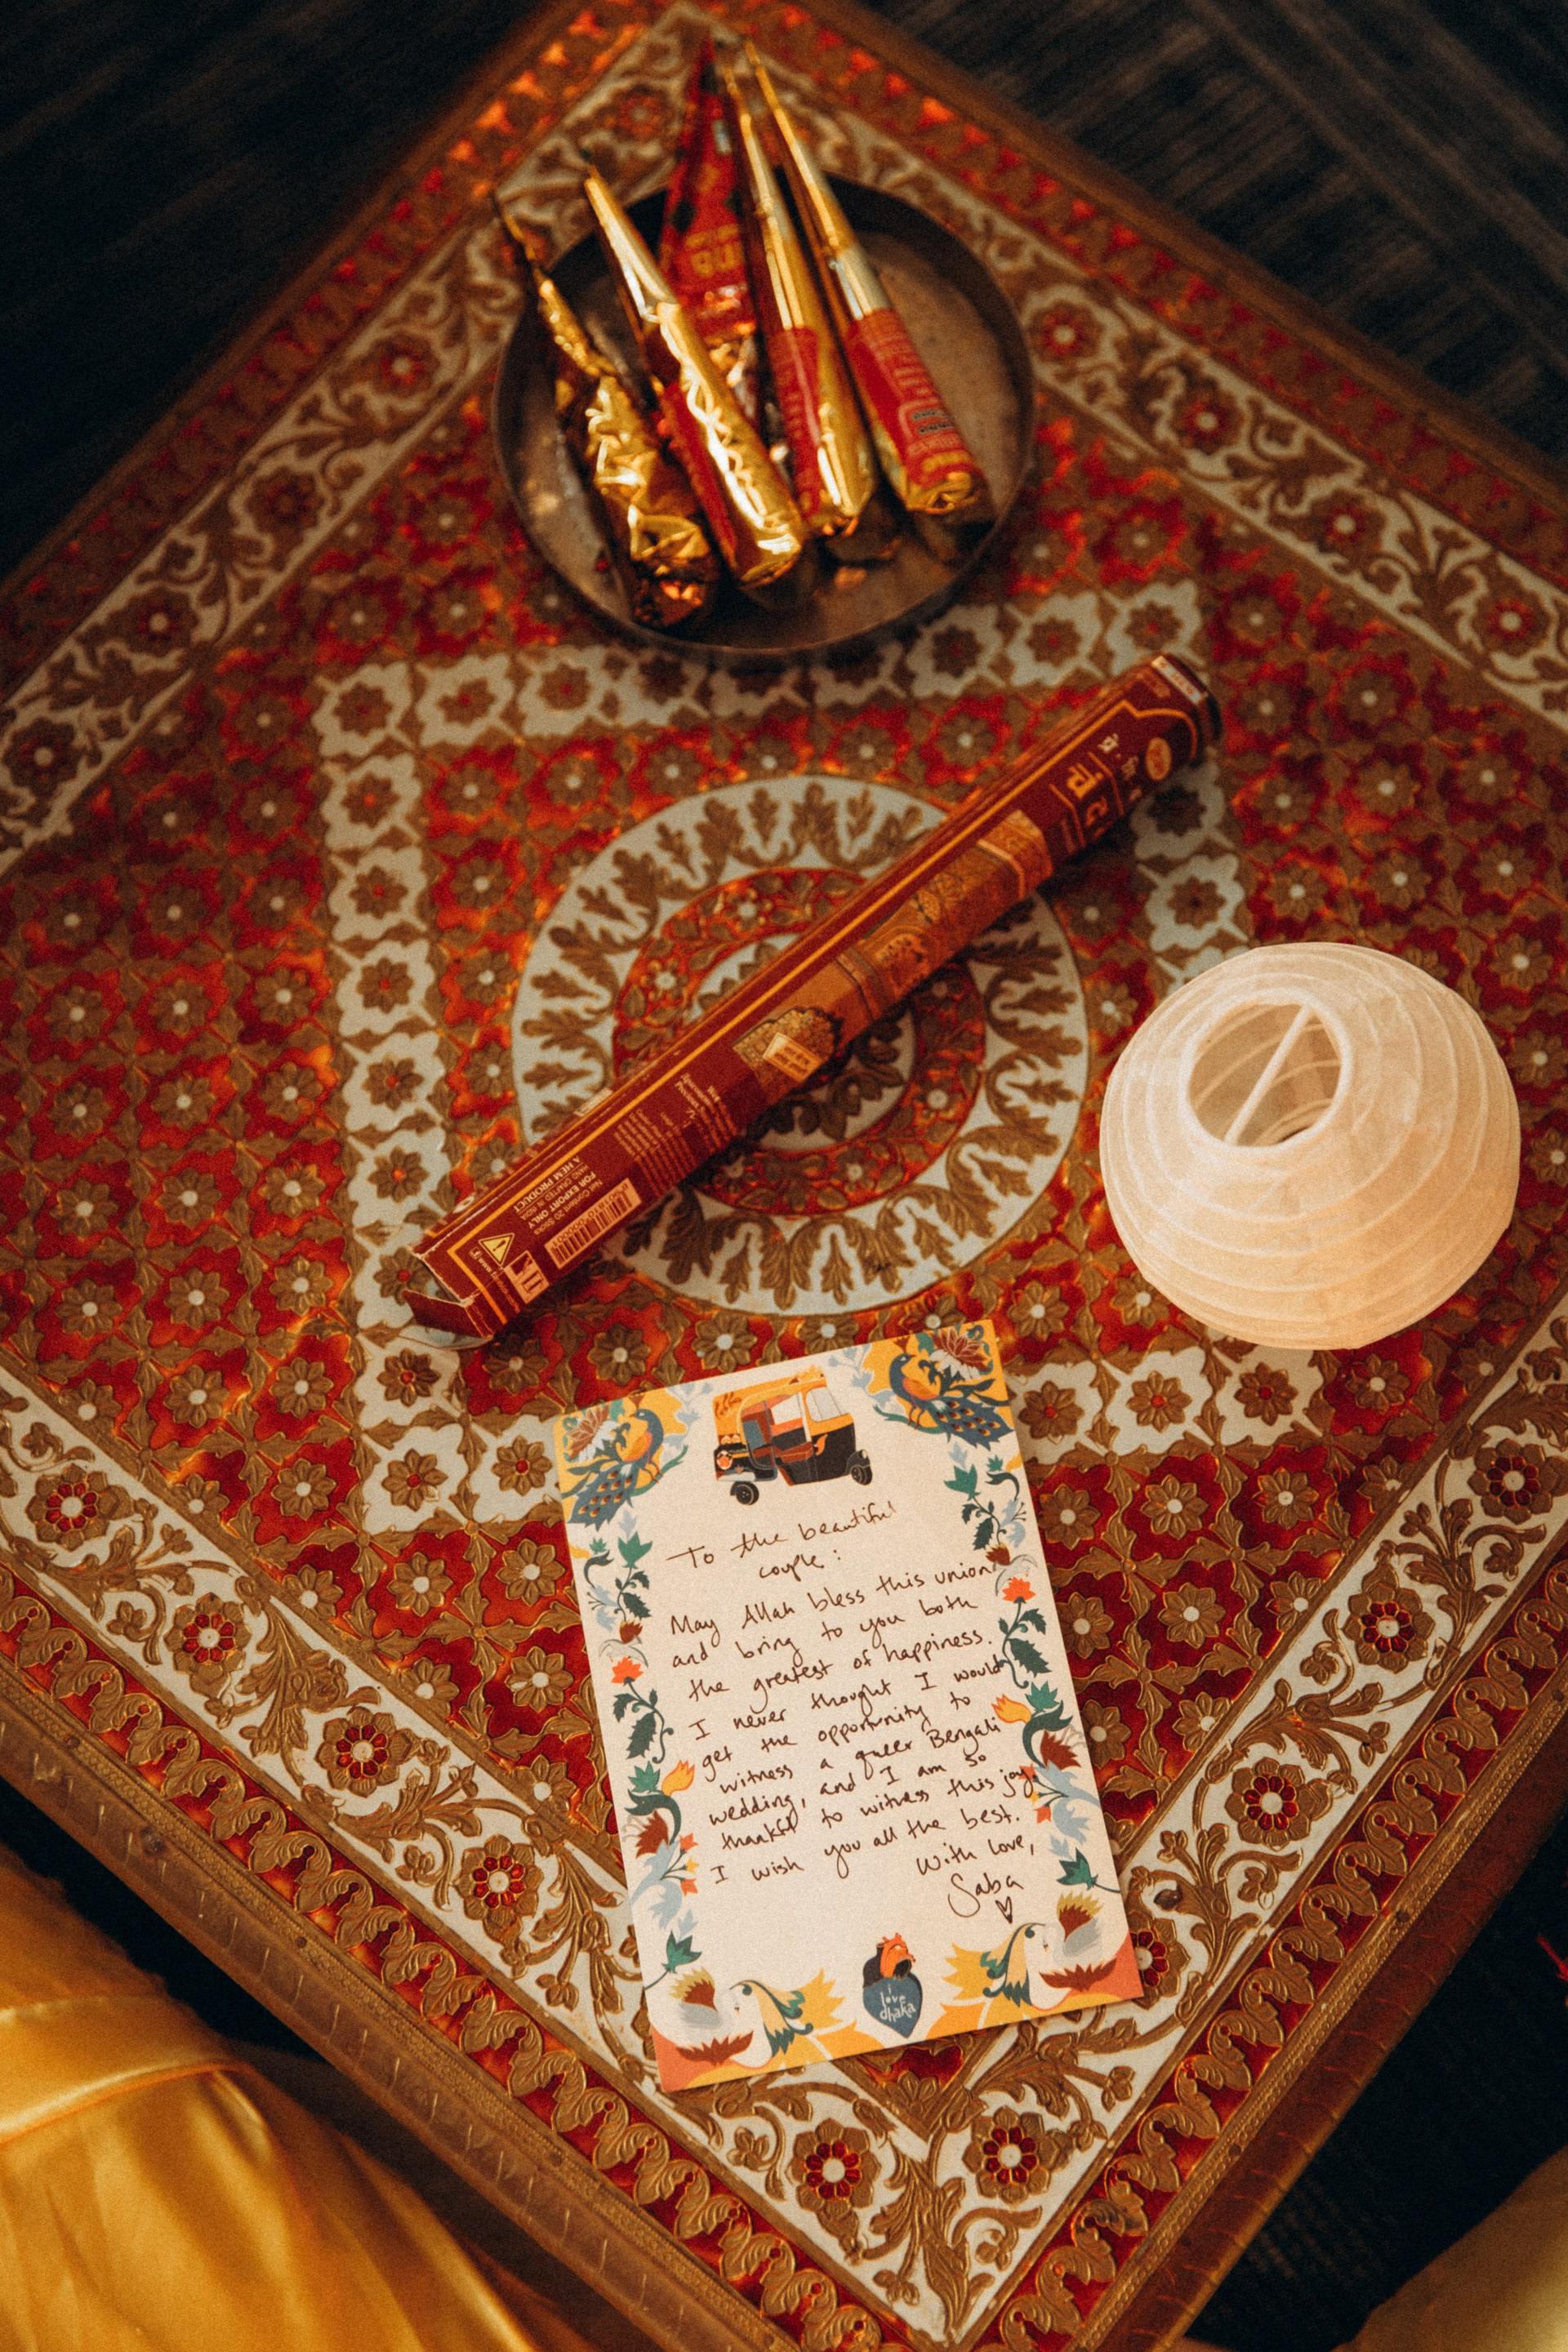 A HEM PRODUCT
HAND CRAFTED IN INDIA
FOR EXPORT ONLY
Net Content 20 Sticks
To the beautiful
couple:
May Allah bless this union
and bring to you both
the greatest of happiness.
I never thought I would
get the opportunity to
witness a queer Bengali
wedding, and I am so
thankful to witness this joy.
I wish you all the best.
With love,
Saba
i
love
dhaka